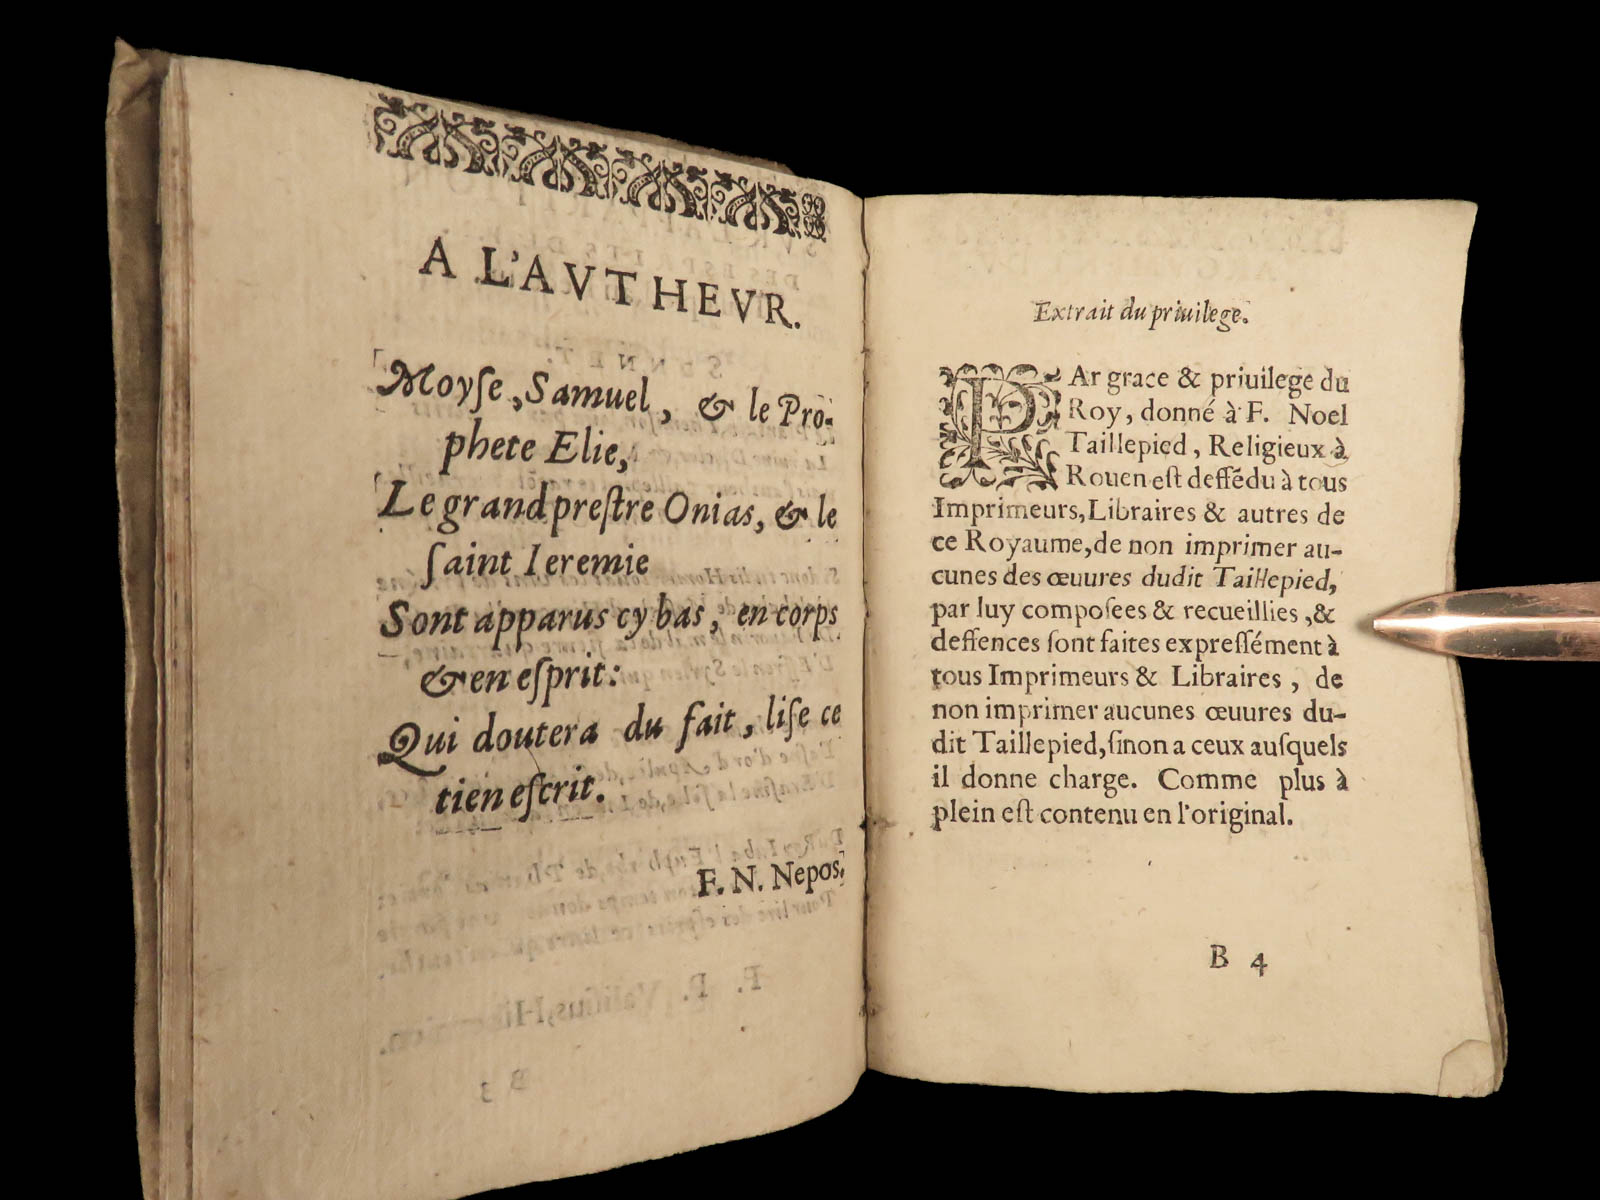 A L'AVTHEVR.
Moyſe, Samuel, & le Pro-
phete Elie,
Le grand preſtre Onias, & le
ſaint Ieremie
Sont apparus cy bas, en corps
& en eſprit:
Qui doutera du fait, liſe ce
tien eſcrit.
F. N. Nepos.
Extrait du priuilege.
PAr grace & priuilege du
Roy, donné à F. Noel
Taillepied, Religieux à
Rouen eſt deffédu à tous
Imprimeurs, Libraires & autres de
ce Royaume, de non imprimer au-
cunes des œuures dudit Taillepied,
par luy compoſees & recueillies, &
deffences ſont faites expreſſément à
tous Imprimeurs & Libraires, de
non imprimer aucunes œuures du-
dit Taillepied, ſinon a ceux auſquels
il donne charge. Comme plus à
plein eſt contenu en l'original.
B 4